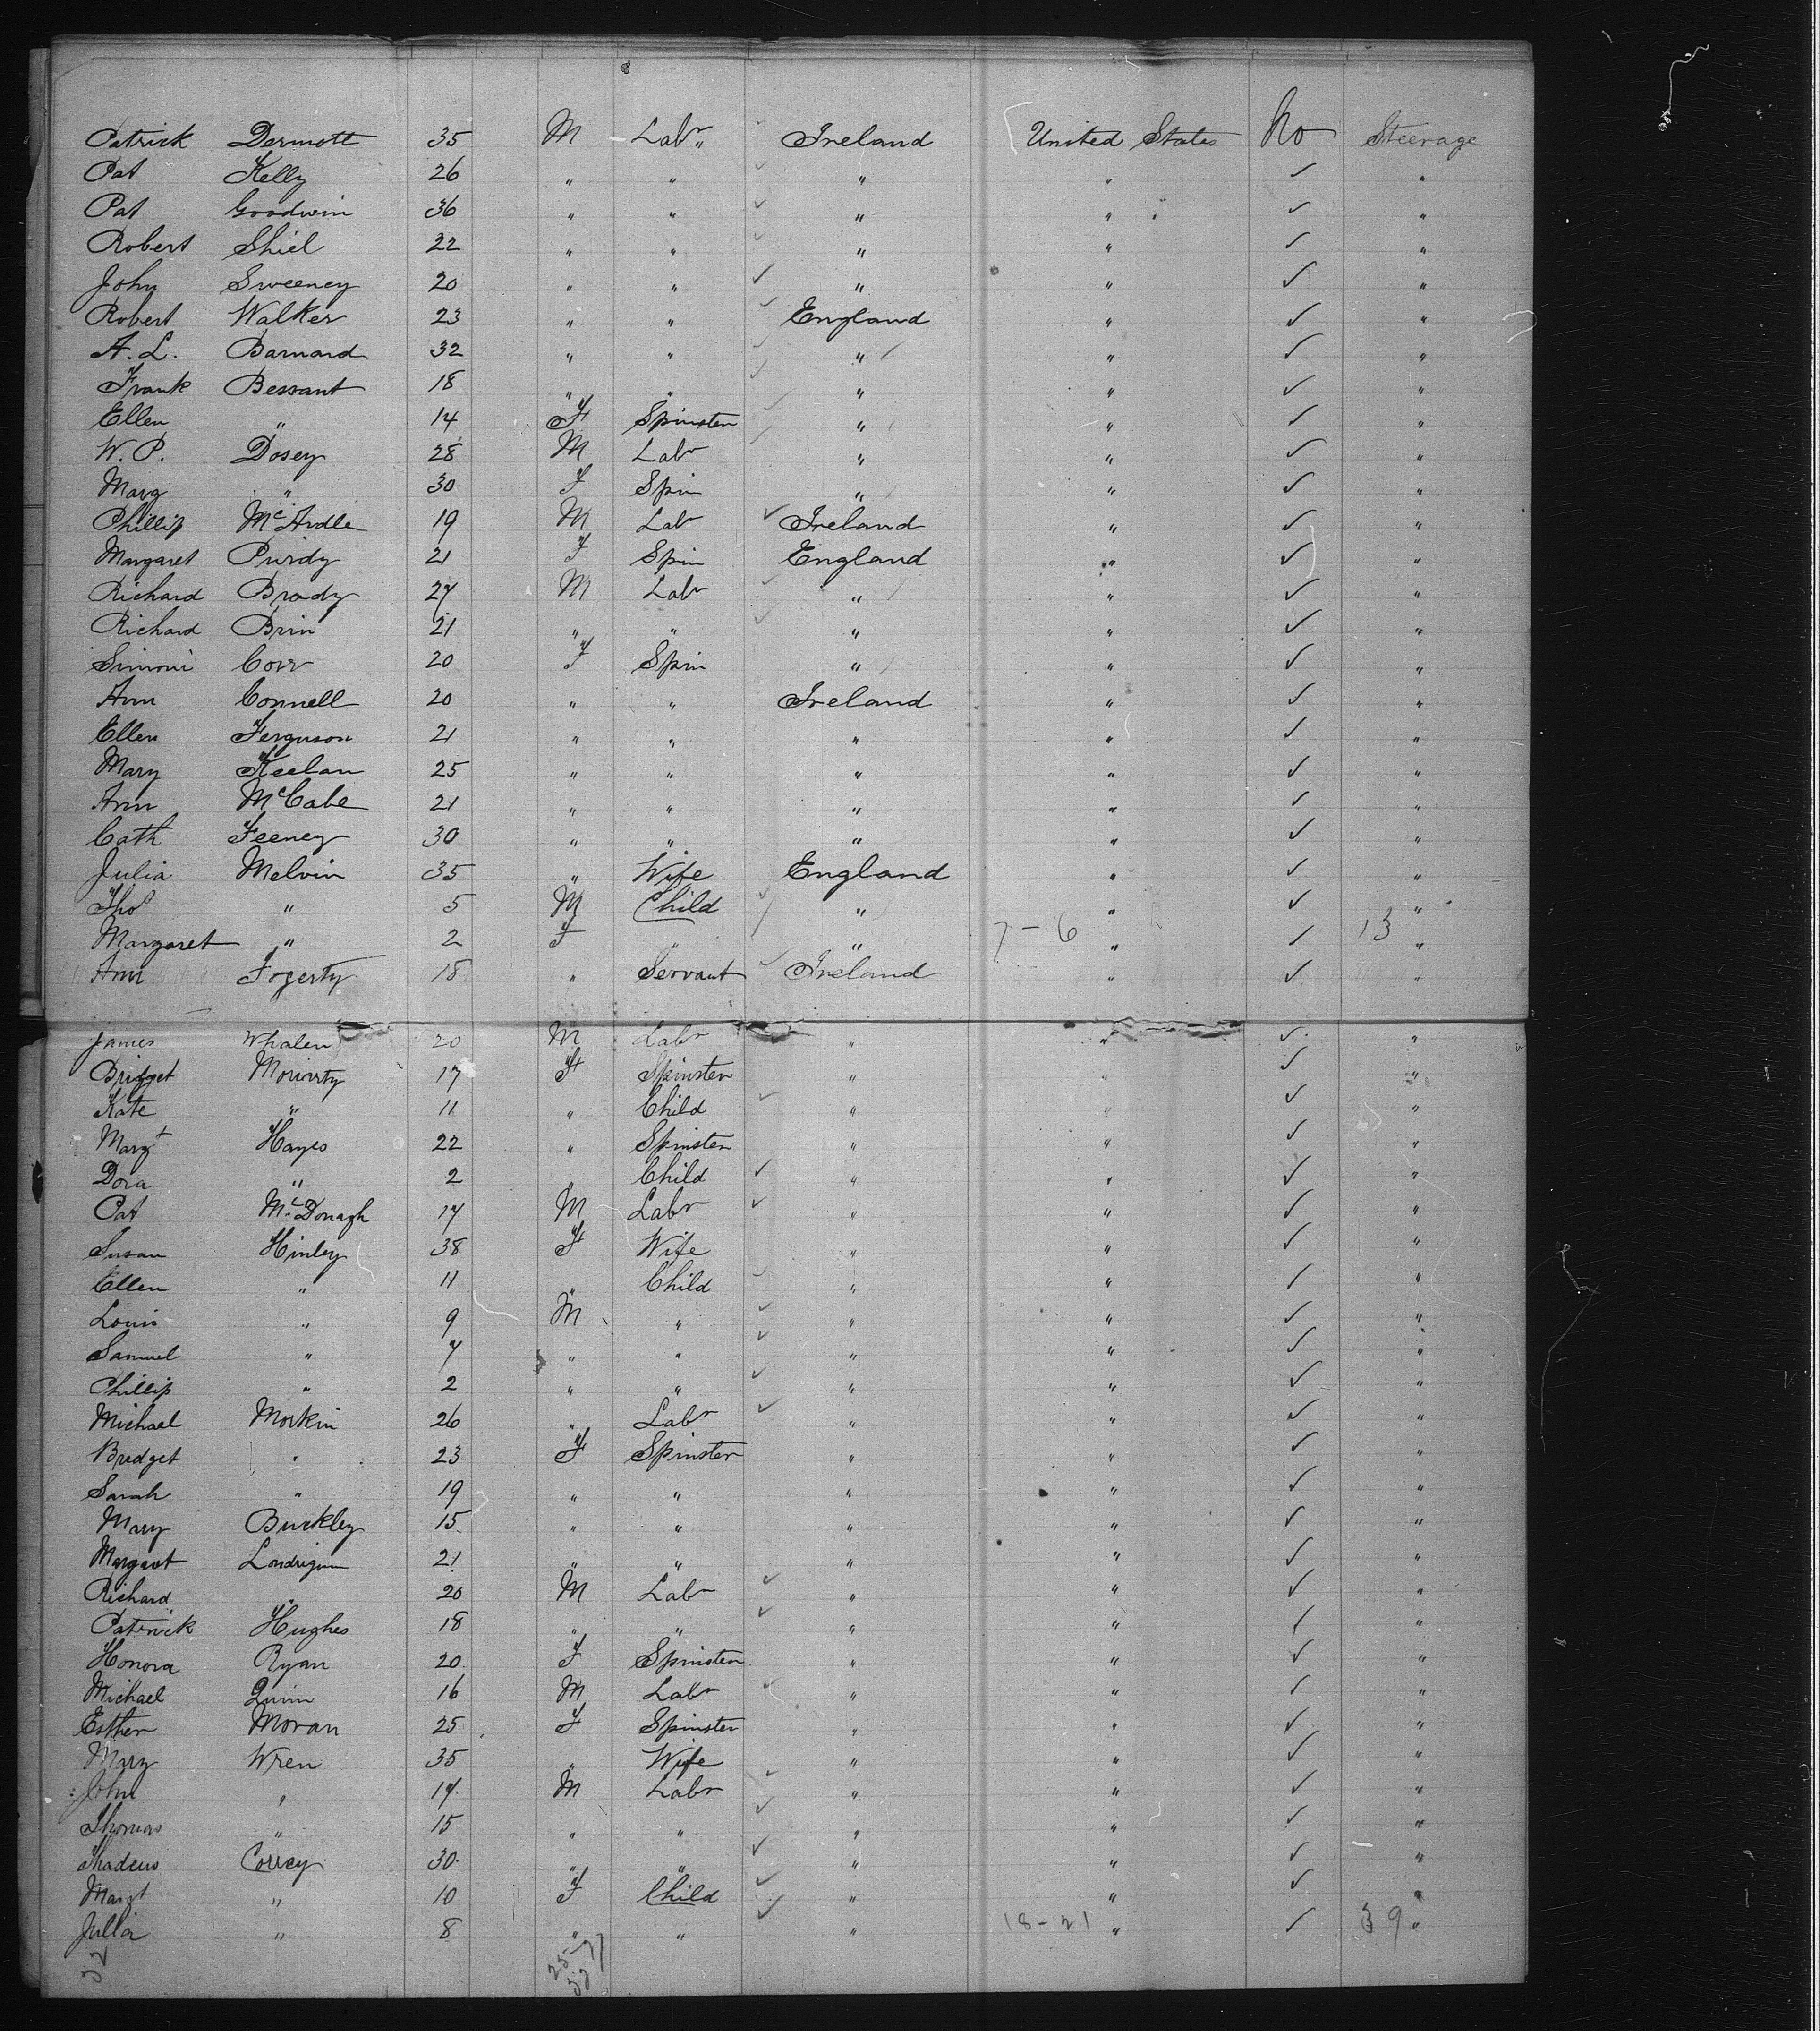 Patrick Dermott 35 M Labr Ireland United States No Steerage
Pat Kelly 26 " " " " ✓ "
Pat Goodwin 36 " " " " ✓ "
Robert Shiel 22 " " " " ✓ "
John Sweeney 20 " " " " ✓ "
Robert Walker 23 " " England " ✓ "
A. L. Barnard 32 " " " " ✓ "
Frank Bessant 18 " " " " ✓ "
Ellen " 14 F Spinster " " ✓ "
W. P. Dosey 28 M Labr " " ✓ "
Marg " 30 F Spin " " ✓ "
Phillip McArdle 19 M Lab Ireland " ✓ "
Margaret Purdy 21 F Spin England " ✓ "
Richard Brady 27 M Labr " " ✓ "
Richard Brin 21 " " " " ✓ "
Simoni Corr 20 F Spin " " ✓ "
Ann Connell 20 " " Ireland " ✓ "
Ellen Ferguson 21 " " " " ✓ "
Mary Keelan 25 " " " " ✓ "
Ann McCabe 21 " " " " ✓ "
Cath Feeney 30 " " " " ✓ "
Julia Melvin 35 " Wife England " ✓ "
Thos " 5 M Child " " ✓ "
Margaret " 2 F " " 7-6 " ✓ 13 "
Ann Fogerty 18 " Servant Ireland " ✓ "
James Whalen 20 M Labr " " ✓ "
Bridget Moriarty 17 F Spinster " " ✓ "
Kate " 11 " Child " " ✓ "
Margt Hayes 22 " Spinster " " ✓ "
Dora " 2 " Child " " ✓ "
Pat McDonagh 17 M Labr " " ✓ "
Susan Hinley 38 F Wife " " ✓ "
Ellen " 11 " Child " " ✓ "
Louis " 9 M " " " ✓ "
Samuel " 7 " " " " ✓ "
Phillip " 2 " " " " ✓ "
Michael Morkin 26 " Labr " " ✓ "
Bridget " 23 F Spinster " " ✓ "
Sarah " 19 " " " " ✓ "
Mary Buckley 15 " " " " ✓ "
Margaret Londrigan 21 " " " " ✓ "
Richard " 20 M Labr " " ✓ "
Patrick Hughes 18 " " " " ✓ "
Honora Ryan 20 F Spinster " " ✓ "
Michael Quinn 16 M Labr " " ✓ "
Esther Moran 25 F Spinster " " ✓ "
Mary Wren 35 " Wife " " ✓ "
John " 17 M Labr " " ✓ "
Thomas " 15 " " " " ✓ "
Thadeus Correy 30 " " " " ✓ "
Margt " 10 F Child " " ✓ "
Julia " 8 " " " 18-21 " ✓ 39 "
52 25-27
52